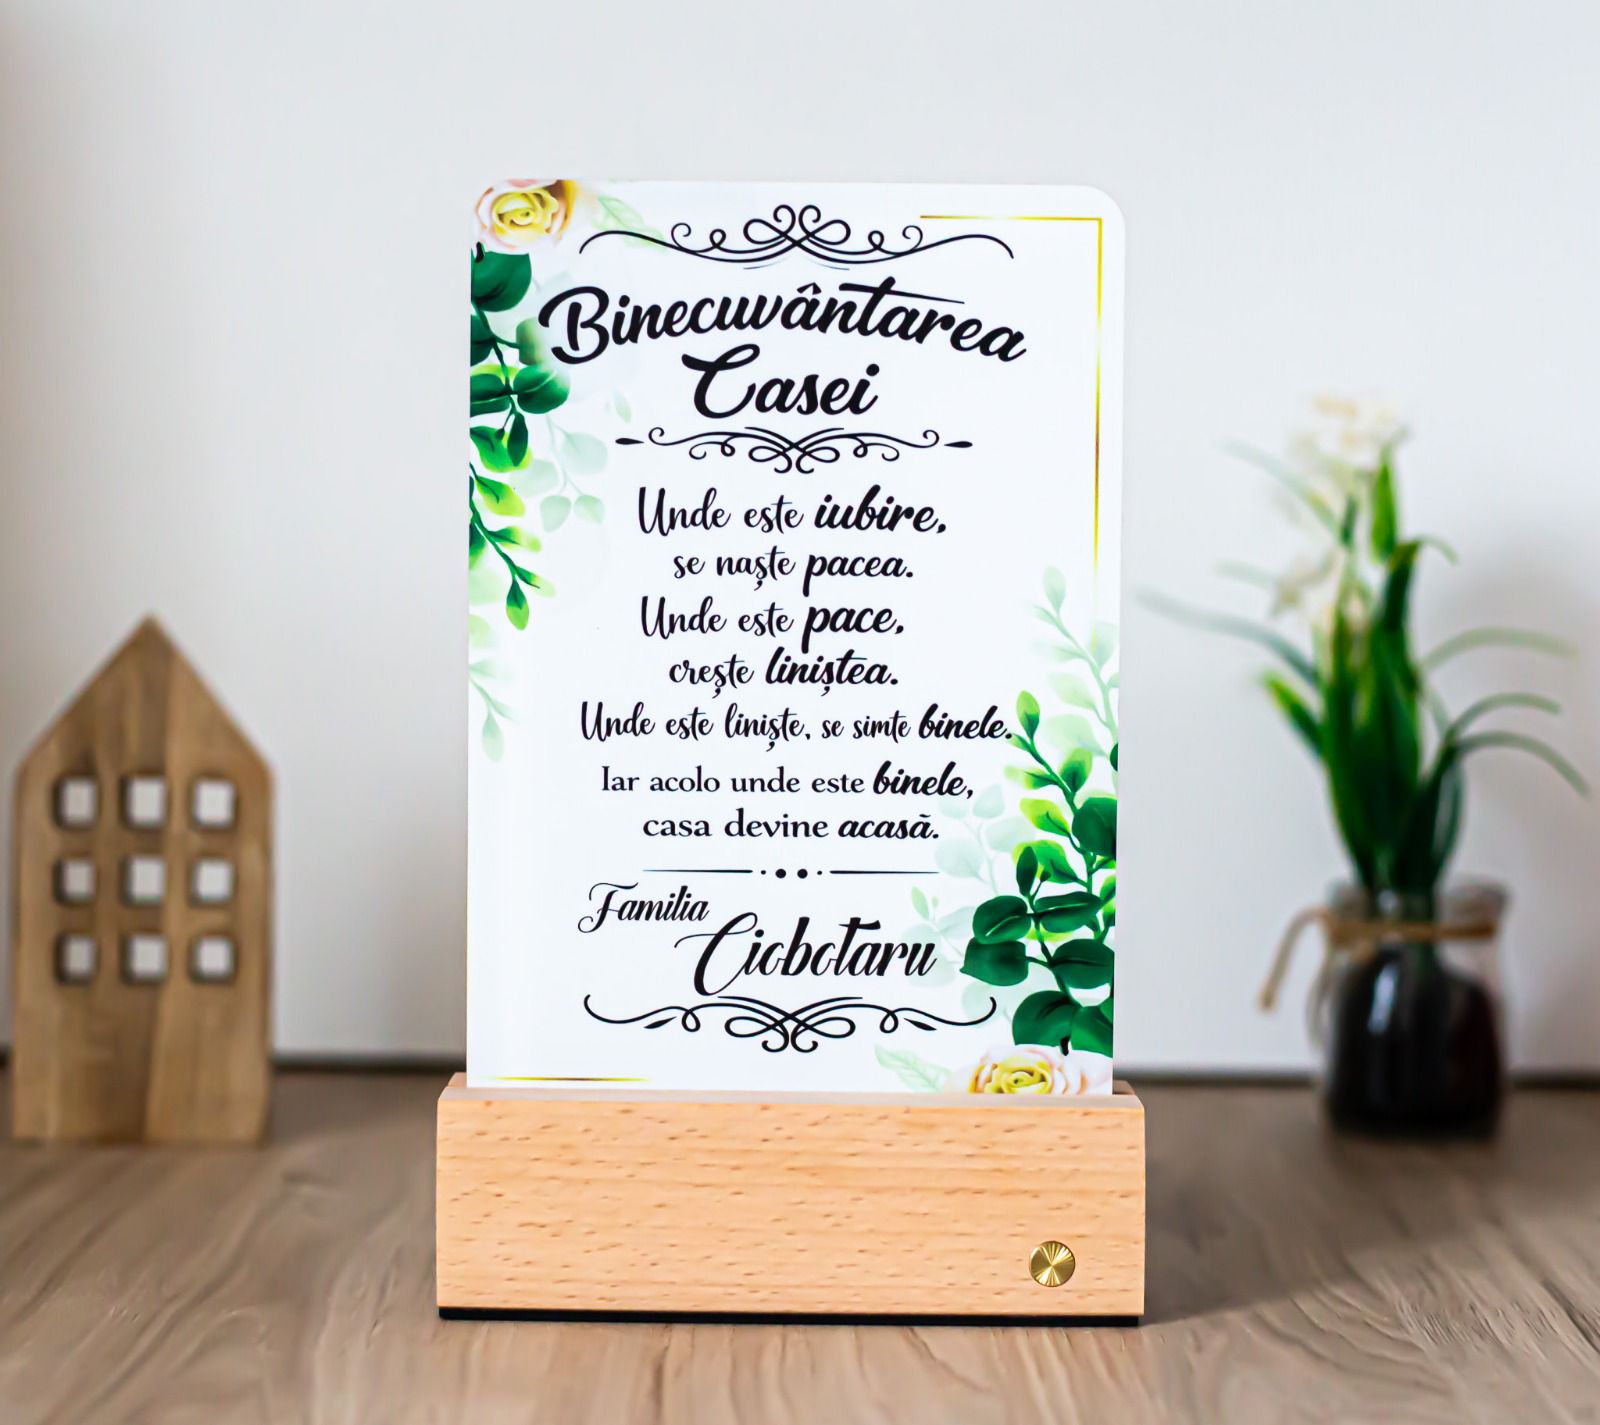 Binecuvântarea
Casei
Unde este iubire,
se naște pacea.
Unde este pace,
crește liniștea.
Unde este liniște, se simte binele.
Iar acolo unde este binele,
casa devine acasă.
Familia
Ciobotaru